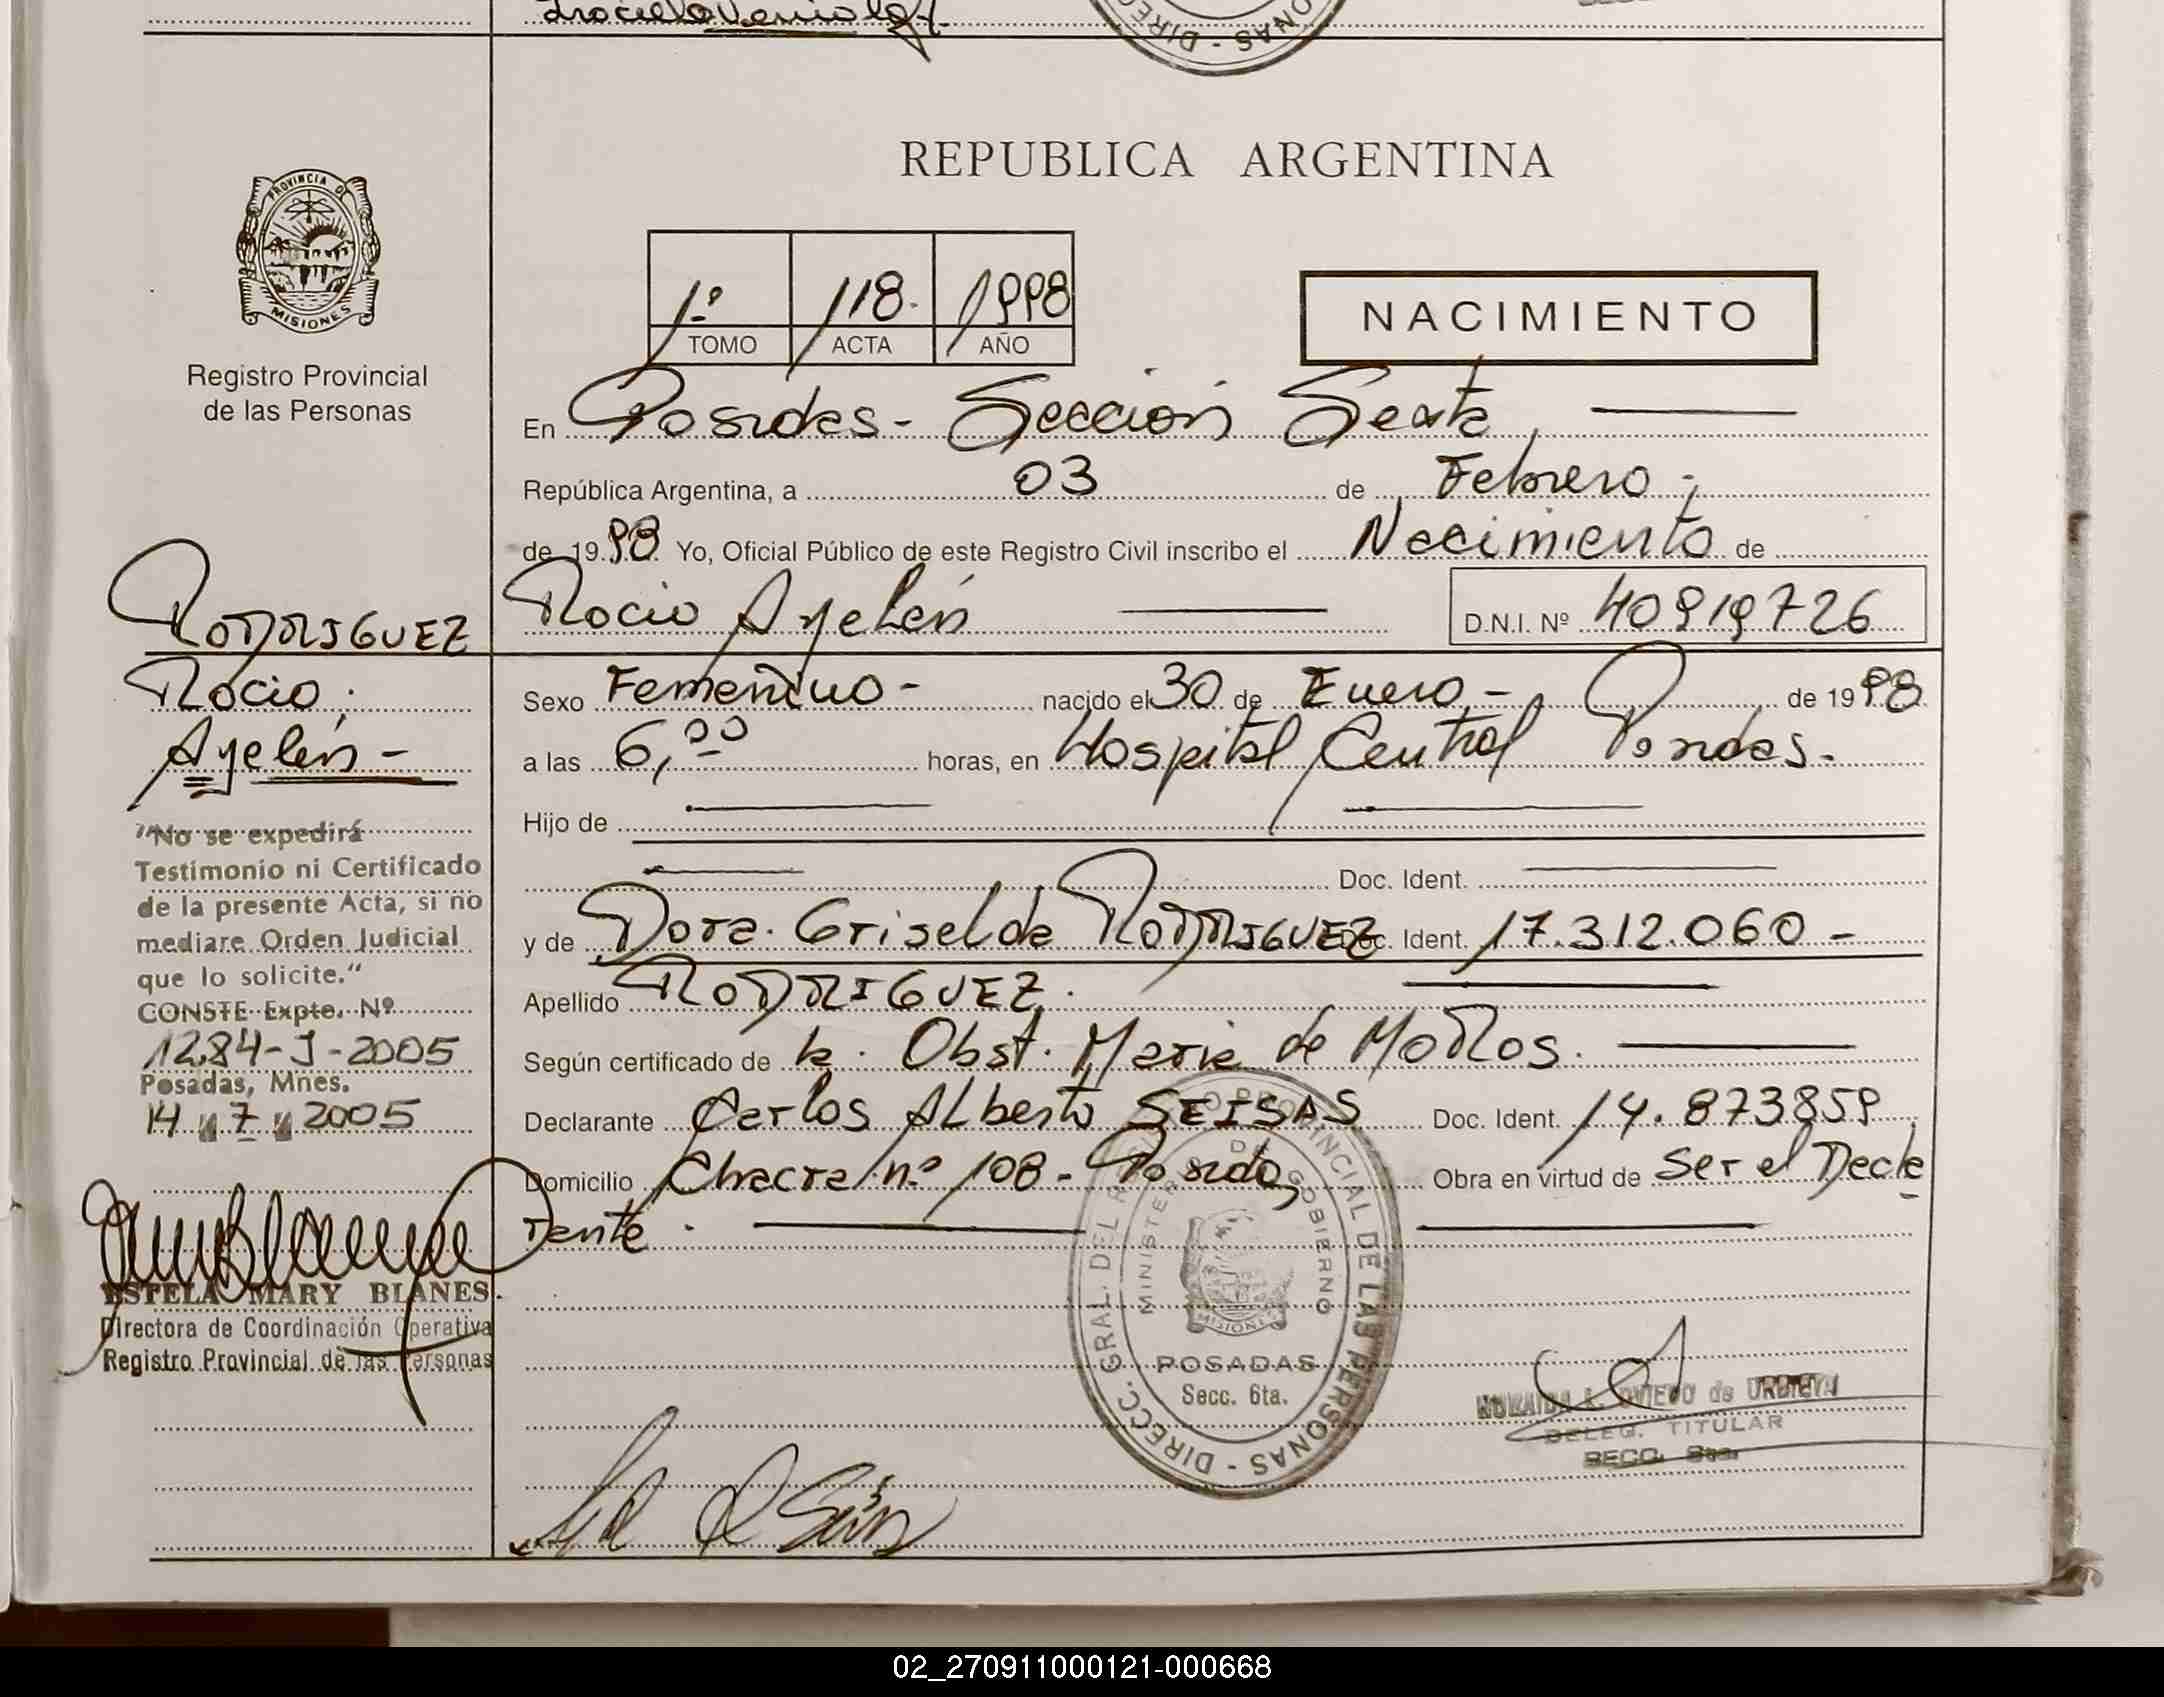 REPUBLICA ARGENTINA
PROVINCIA DE
MISIONES
Registro Provincial
de las Personas
1º 118. 1998
TOMO ACTA AÑO
NACIMIENTO
En Posadas - Sección Sexta,
República Argentina, a 03 de Febrero -
de 1998 Yo, Oficial Público de este Registro Civil inscribo el Nacimiento de
Rocio Ayelén D.N.I. Nº 40919726
RODRIGUEZ
Rocio
Ayelén -
Sexo Femenino - nacido el 30 de Enero - de 1998
a las 6,00 horas, en Hospital Central Posadas.
Hijo de
Doc. Ident.
y de Dora Griselda RODRIGUEZ Doc. Ident. 17.312.060 -
Apellido RODRIGUEZ.
Según certificado de la Obst. Maria de MoRRos.
Declarante Carlos Alberto SEISAS Doc. Ident. 14.873859
Domicilio Chacra nº 108 - Posadas Obra en virtud de ser el Decla
rante.
"No se expedirá
Testimonio ni Certificado
de la presente Acta, si no
mediare Orden Judicial
que lo solicite."
CONSTE Expte. Nº
1284-J-2005
Posadas, Mnes.
14 7 2005
ESTELA MARY BLANES
Directora de Coordinación Operativa
Registro Provincial de las Personas
DIRECC. GRAL. DEL REGISTRO PROVINCIAL DE LAS PERSONAS -
MINISTERIO DE GOBIERNO
MISIONES
POSADAS
Secc. 6ta.
OVIEDO de
DELEG. TITULAR
SECC. 6ta.
02_270911000121-000668